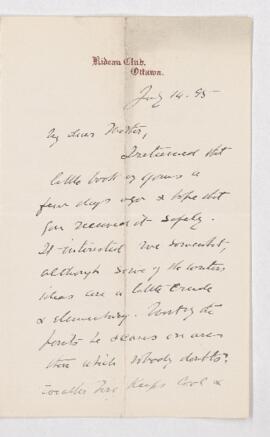 Rideau Club,
Ottawa.
July 14. 95
My dear
I returned that
little book of yours a
few days ago & hope that
you received it safely.
It interested me somewhat,
although some of the writers
ideas are a little crude
& elementary. Most of the
points he on are
then which nobody doubts.
keeps cool &